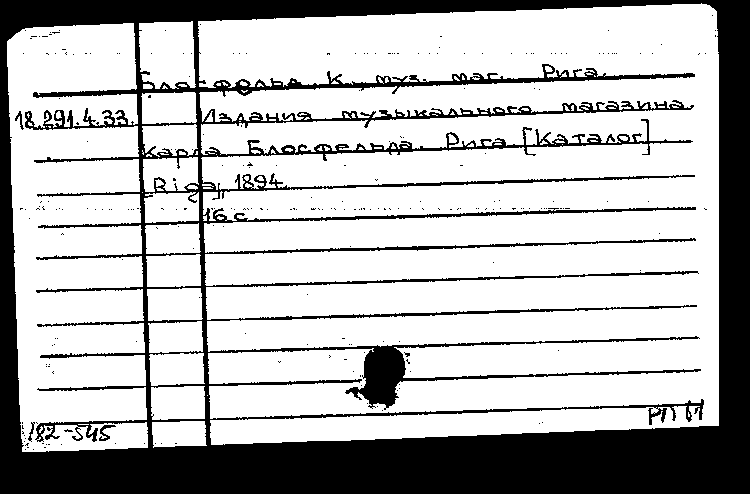 Блосфельд К., муз. маг. Рига.
18.291.4.33. Издания музыкального магазина
Карла Блосфельда. Рига [Каталог]
Riga, 1894.
16 с.
182-545